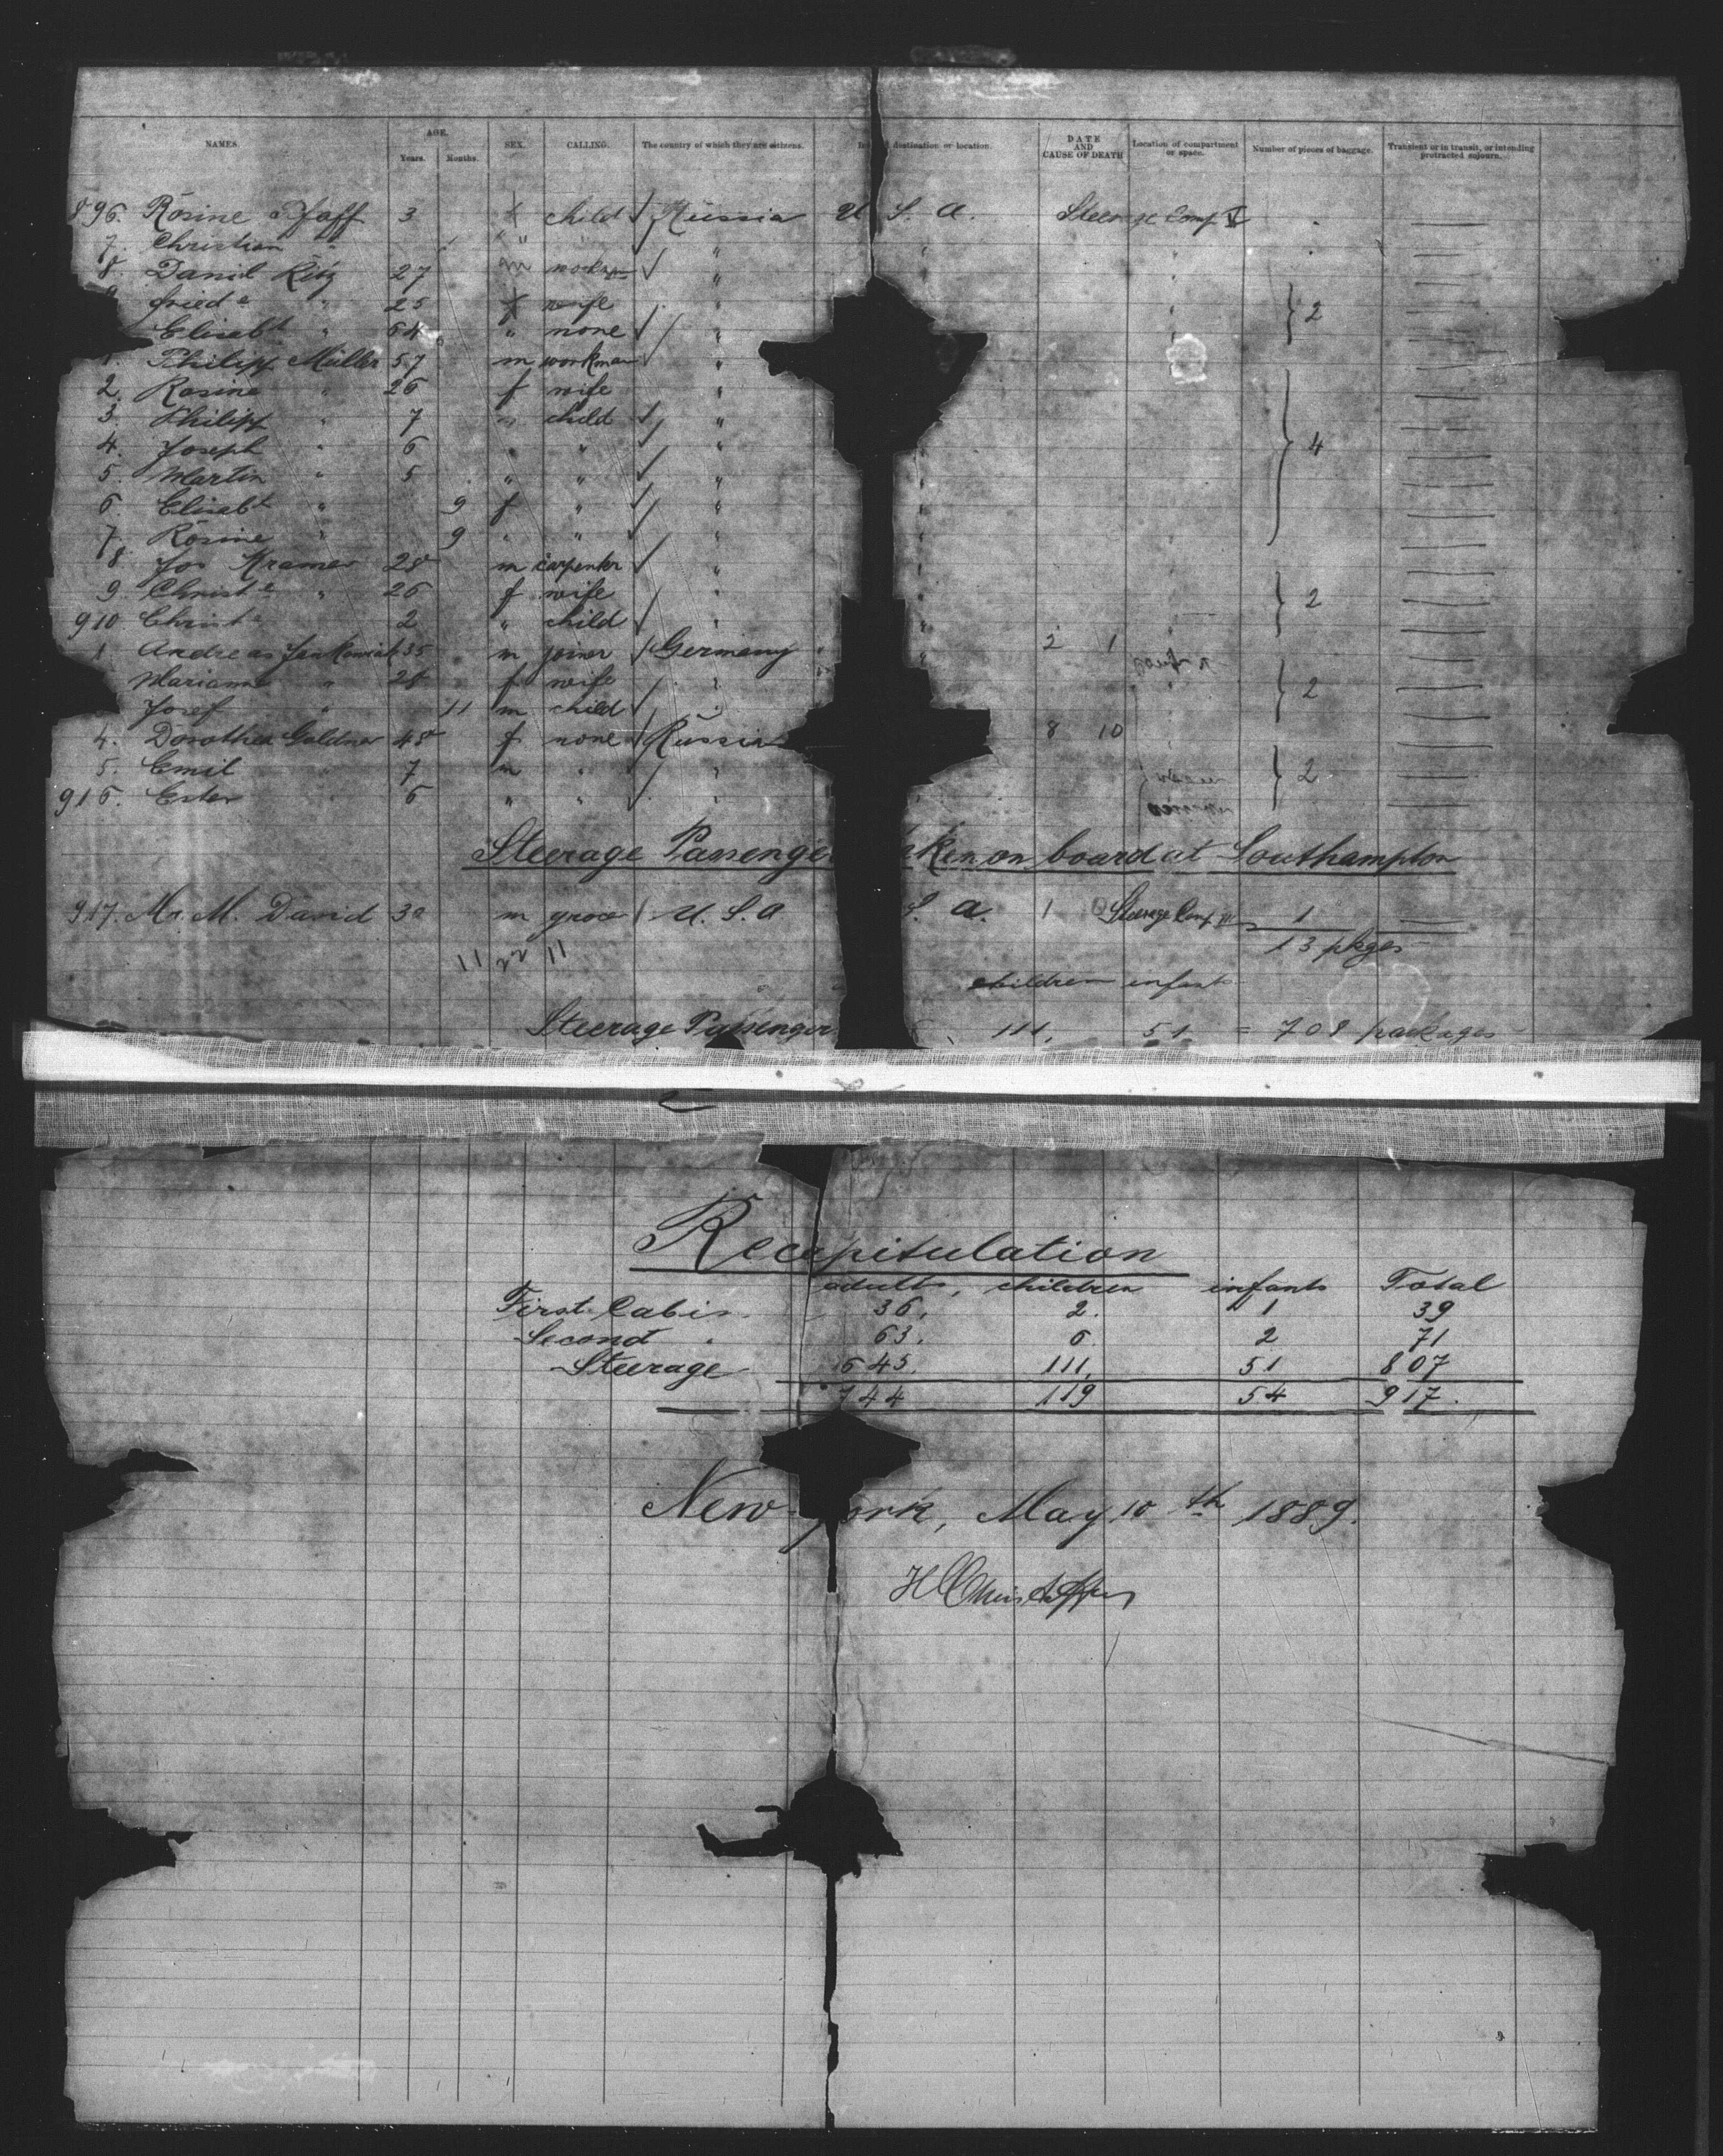 NAMES. AGE. Years. Months. SEX. CALLING. The country of which they are citizens. destination or location. DATE AND CAUSE OF DEATH Location of compartment or space. Number of pieces of baggage. Transient or in transit, or intending protracted sojourn.
896. Rosine Pfaff 3 f child Russia U. S. A. Steerage Comp V
7. Christian " " "
8. Daniel 27 m "
fried e " 25 f wife " 2
Elisabt " 64 " none "
1. Philipp Müller 57 m workman "
2. Rosine " 26 f wife "
3. Philipp " 7 m child "
4. Joseph " 6 " " " 4
5. Martin " 5 " " "
6. Elisabt " 9 f " "
7. Rosine " 9 " " "
8. Jos Kramer 28 m carpenter "
9. Christe " 26 f wife " 2
910. Christe 2 " child "
1. Andreas 35 m joiner Germany " 2 1
Marianna " 28 f wife " 2
Josef " 11 m child "
4. Dorothea Goldner 48 f none Russia 8 10
5. Emil " 7 m " " 2
916. Ester " 6 " " "
Steerage Passenge ken on board at Southampton
917. Mr. M. David 30 m grocer U. S. A S. A. 1 Steerage Comp 1
13 pkges
11 22 11
children infant
Steerage Passenger 111, 51 = 708 packages
Recapitulation
adults, children infants Total
First Cabin 36, 2. 1 39
Second " 63. 6. 2 71
Steerage 645. 111, 51 807
744 119 54 917.
New-york, May 10th 1889.